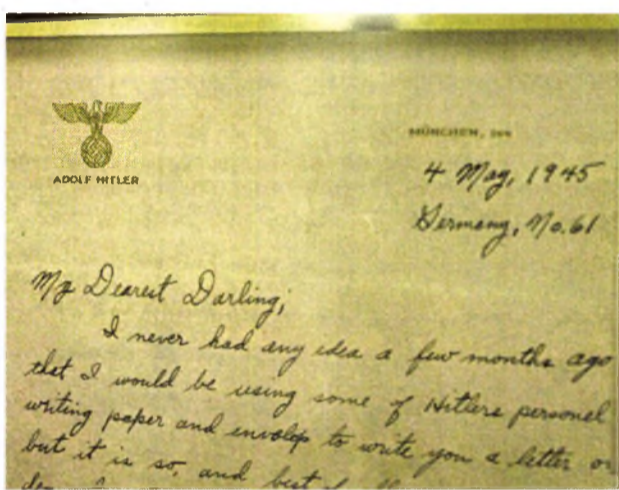 MÜNCHEN, DEN
ADOLF HITLER
4 May, 1945
Germany, No. 61
My Dearest Darling;
I never had any idea a few months ago
that I would be using some of Hitlers personal
writing paper and envolop to write you a letter on
but it is so, and best